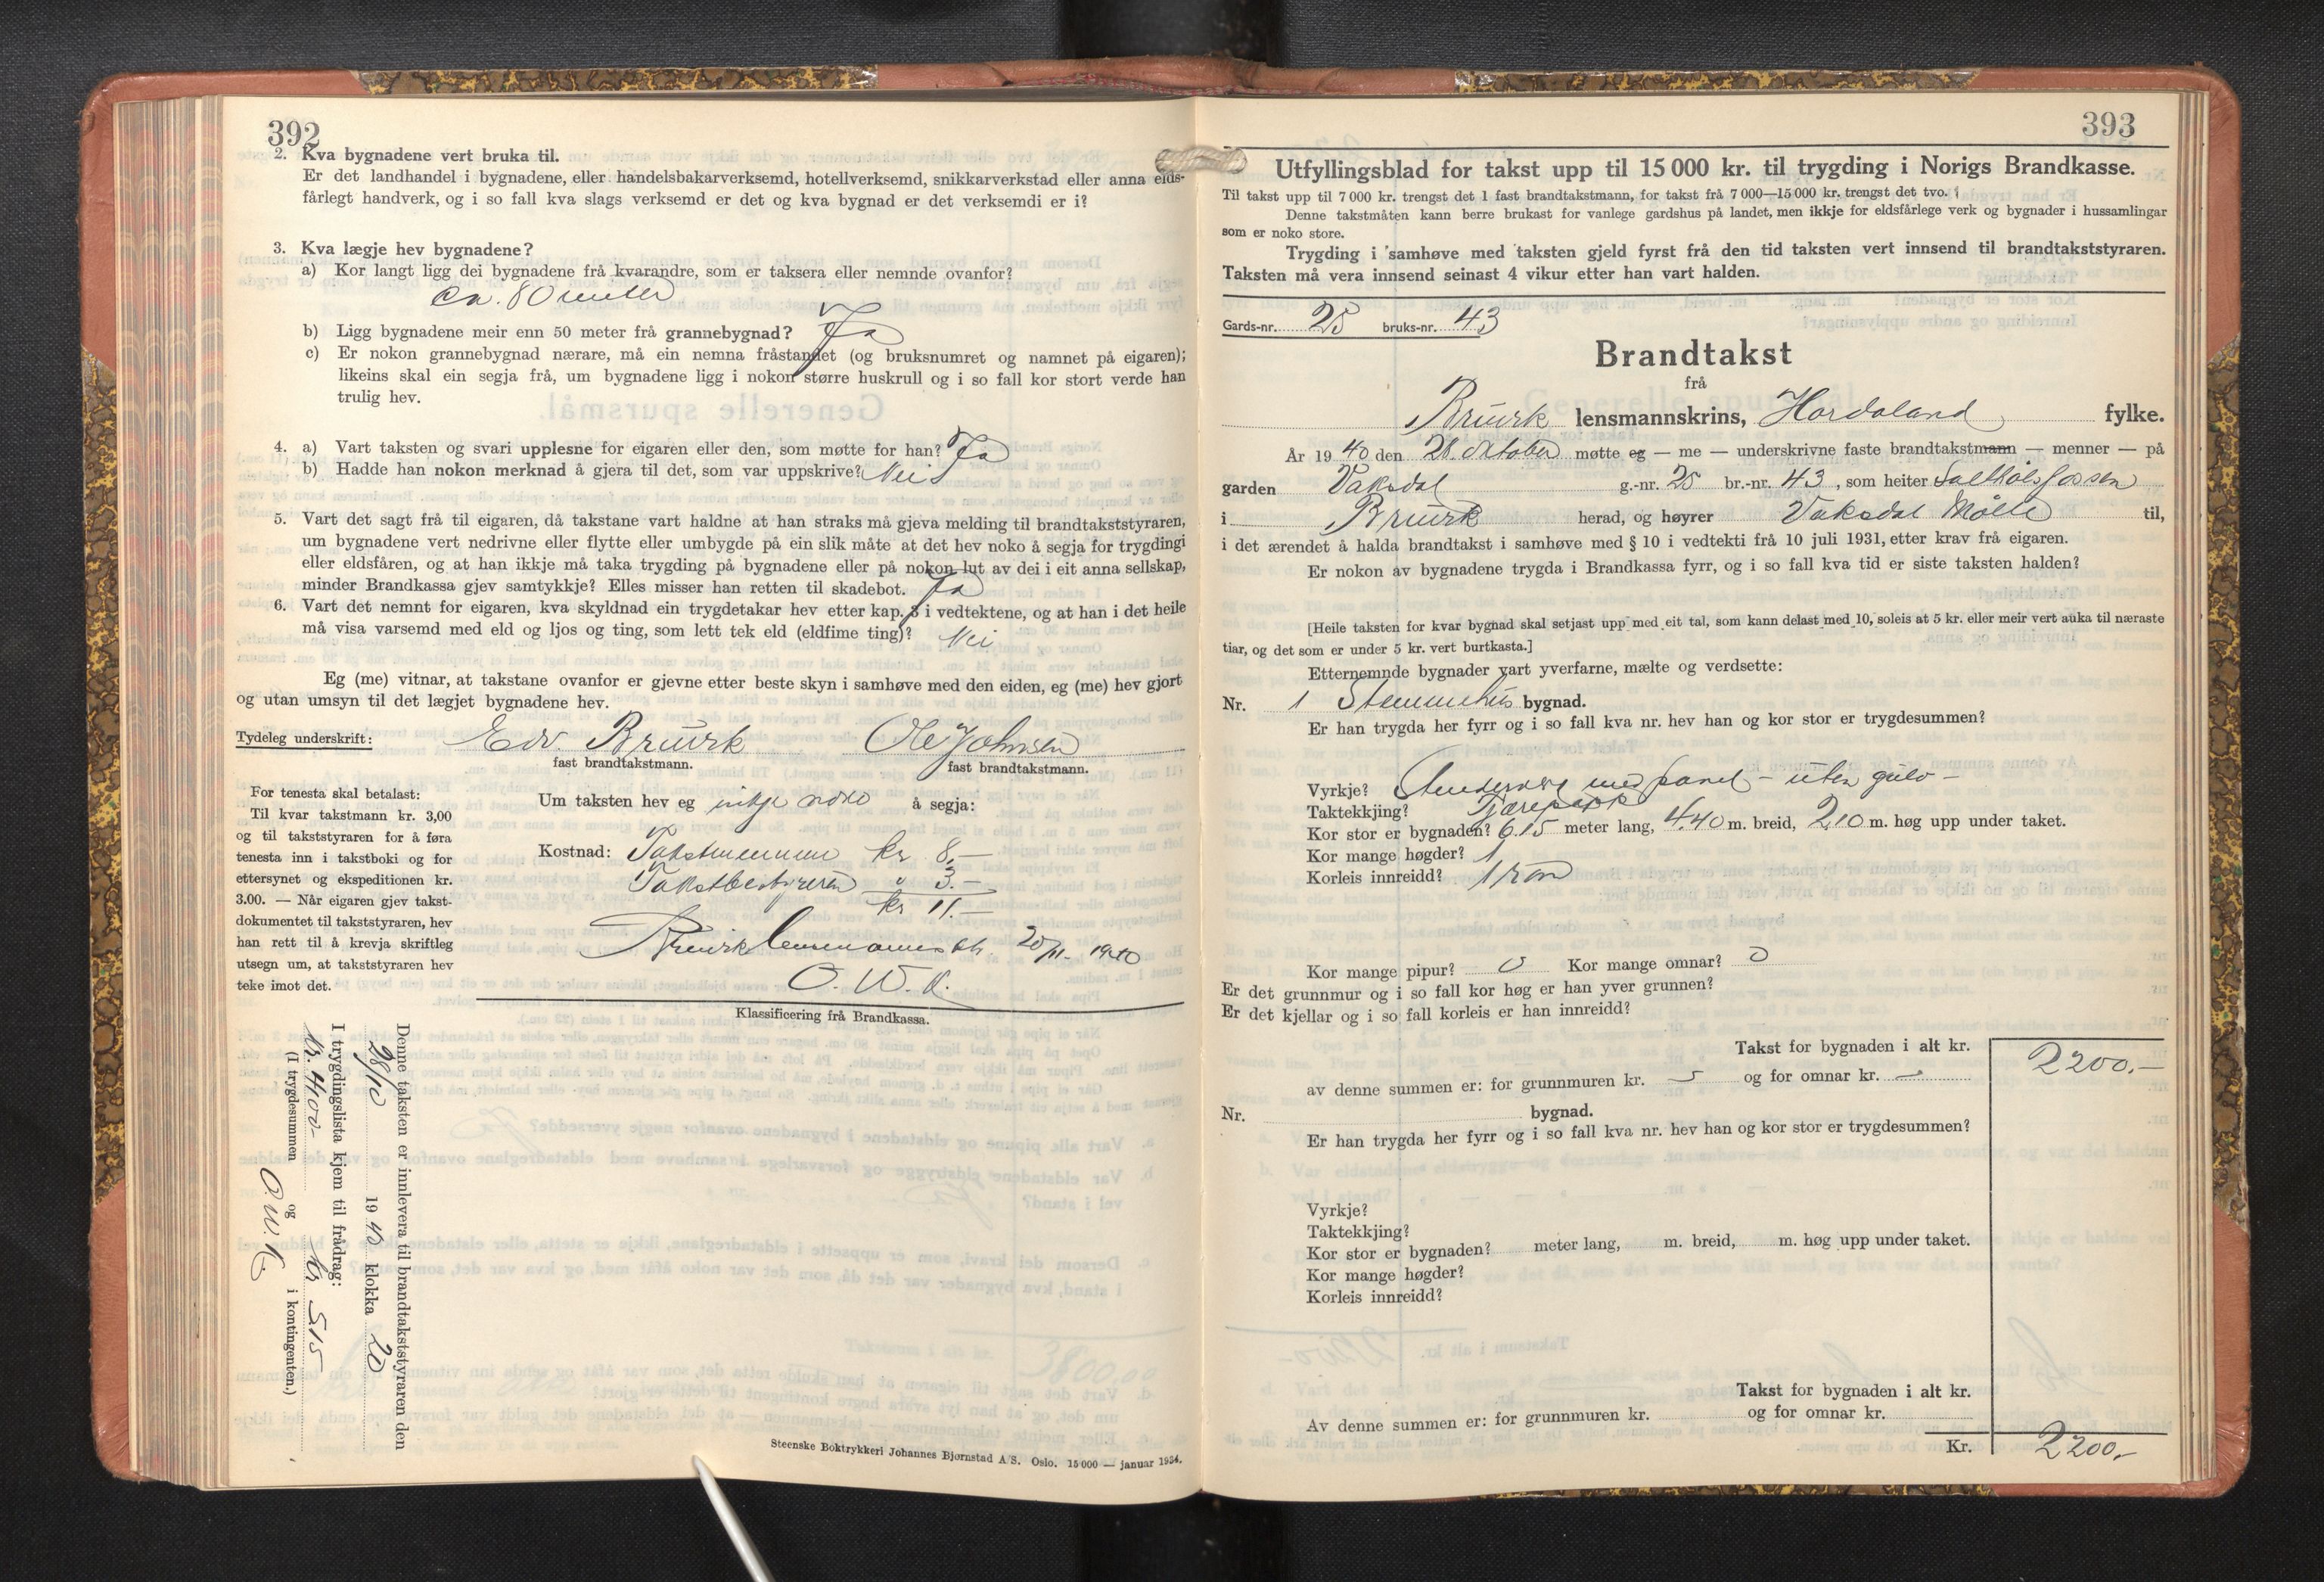 392
2. Kva bygnadene vert bruka til.
Er det landhandel i bygnadene, eller handelsbakarverksemd, hotellverksemd, snikkarverkstad eller anna elds-
fårlegt handverk, og i so fall kva slags verksemd er det og kva bygnad er det verksemdi er i?
3. Kva lægje hev bygnadene?
a) Kor langt ligg dei bygnadene frå kvarandre, som er taksera eller nemnde ovanfor?
ca. 80 meter
b) Ligg bygnadene meir enn 50 meter frå grannebygnad? Ja
c) Er nokon grannebygnad nærare, må ein nemna fråstandet (og bruksnumret og namnet på eigaren);
likeins skal ein segja frå, um bygnadene ligg i nokon større huskrull og i so fall kor stort verde han
trulig hev.
4. a) Vart taksten og svari upplesne for eigaren eller den, som møtte for han? Ja
b) Hadde han nokon merknad å gjera til det, som var uppskrive? Nei
5. Vart det sagt frå til eigaren, då takstane vart haldne at han straks må gjeva melding til brandtakststyraren,
um bygnadene vert nedrivne eller flytte eller umbygde på ein slik måte at det hev noko å segja for trygdingi
eller eldsfåren, og at han ikkje må taka trygding på bygnadene eller på nokon lut av dei i eit anna sellskap,
minder Brandkassa gjev samtykkje? Elles misser han retten til skadebot. Ja
6. Vart det nemnt for eigaren, kva skyldnad ein trygdetakar hev etter kap. 3 i vedtektene, og at han i det heile
må visa varsemd med eld og ljos og ting, som lett tek eld (eldfime ting)? Nei
Eg (me) vitnar, at takstane ovanfor er gjevne etter beste skyn i samhøve med den eiden, eg (me) hev gjort
og utan umsyn til det lægjet bygnadene hev.
Tydeleg underskrift: Edv. Bruvik Ole Johnsen
fast brandtakstmann. fast brandtakstmann.
For tenesta skal betalast:
Til kvar takstmann kr. 3,00
og til takststyraren for å føra
tenesta inn i takstboki og for
ettersynet og ekspeditionen kr.
3.00. — Når eigaren gjev takst-
dokumentet til takststyraren, hev
han rett til å krevja skriftleg
utsegn um, at takststyraren hev
teke imot det.
Um taksten hev eg inkje noko å segja:
Kostnad: Takstmennene kr 8.—
Takstbestyreren " 3.—
kr 11.—
Bruvik lensmannsktr. 20/11. 1940
O. W. K.
Klassificering frå Brandkassa.
Denne taksten er innlevera til brandtakststyraren den
28/10 1940 klokka 20
I trygdingslista kjem til frådrag:
kr. 4400- kr. 5.15
(I trygdesummen og i kontingenten.)
O. W. K.
Steenske Boktrykkeri Johannes Bjørnstad A/S. Oslo. 15 000 — januar 1934.
393
Utfyllingsblad for takst upp til 15 000 kr. til trygding i Norigs Brandkasse.
Til takst upp til 7 000 kr. trengst det 1 fast brandtakstmann, for takst frå 7 000—15 000 kr. trengst det tvo.
Denne takstmåten kann berre brukast for vanlege gardshus på landet, men ikkje for eldsfårlege verk og bygnader i hussamlingar
som er noko store.
Trygding i samhøve med taksten gjeld fyrst frå den tid taksten vert innsend til brandtakststyraren.
Taksten må vera innsend seinast 4 vikur etter han vart halden.
Gards-nr. 25 bruks-nr. 43
Brandtakst
frå
Bruvik lensmannskrins, Hordaland fylke.
År 1940 den 28 oktober møtte eg — me — underskrivne faste brandtakstmann — menner — på
garden Vaksdal g.-nr. 25 br.-nr. 43, som heiter
i Bruvik herad, og høyrer Vaksdal Mølle til,
i det ærendet å halda brandtakst i samhøve med § 10 i vedtekti frå 10 juli 1931, etter krav frå eigaren.
Er nokon av bygnadene trygda i Brandkassa fyrr, og i so fall kva tid er siste taksten halden?
[Heile taksten for kvar bygnad skal setjast upp med eit tal, som kann delast med 10, soleis at 5 kr. eller meir vert auka til næraste
tiar, og det som er under 5 kr. vert burtkasta.]
Etternemnde bygnader vart yverfarne, mælte og verdsette:
Nr. 1 Stemmehus bygnad.
Er han trygda her fyrr og i so fall kva nr. hev han og kor stor er trygdesummen?
Vyrkje? med panel - uten gulv -
Taktekkjing? Tjærepapp
Kor stor er bygnaden? 6.15 meter lang, 4.40 m. breid, 2.10 m. høg upp under taket.
Kor mange høgder? 1
Korleis innreidd? 1 rom
Kor mange pipur? 0 Kor mange omnar? 0
Er det grunnmur og i so fall kor høg er han yver grunnen?
Er det kjellar og i so fall korleis er han innreidd?
Takst for bygnaden i alt kr. 2200.—
av denne summen er: for grunnmuren kr. — og for omnar kr. —
Nr. bygnad.
Er han trygda her fyrr og i so fall kva nr. hev han og kor stor er trygdesummen?
Vyrkje?
Taktekkjing?
Kor stor er bygnaden? meter lang, m. breid, m. høg upp under taket.
Kor mange høgder?
Korleis innreidd?
Takst for bygnaden i alt kr.
Av denne summen er: for grunnmuren kr. og for omnar kr.
Kr. 2200,-